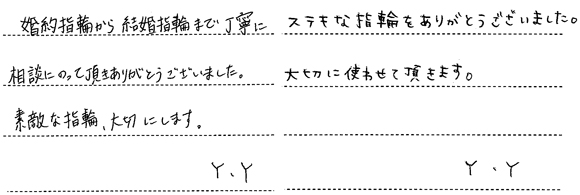 婚約指輪から結婚指輪まで丁寧に
相談にのって頂きありがとうございました。
素敵な指輪、大切にします。
Y、Y
ステキな指輪をありがとうございました。
大切に使わせて頂きます。
Y、Y